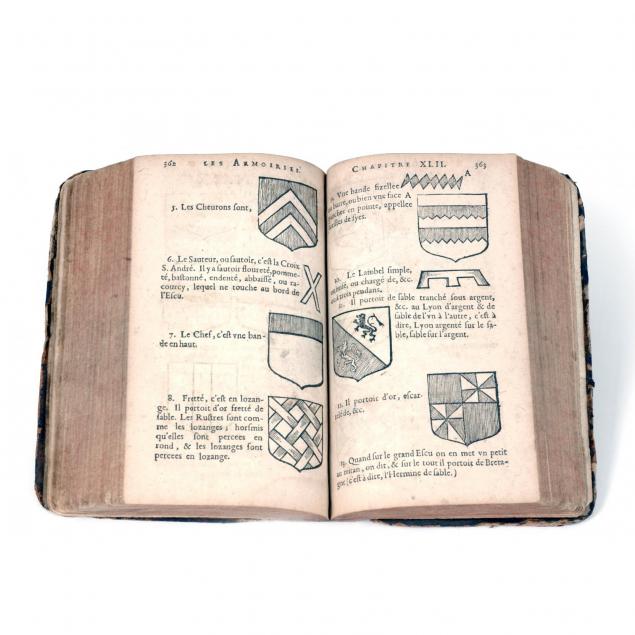 362 LES ARMOIRIES.
5. Les Cheurons sont,
6. Le Sauteur, ou sautoir, c'est la Croix
S. André. Il y a sautoir floureté, pommeté,
bastonné, endenté, abbaissé, ou racourcy,
lequel ne touche au bord de
l'Escu.
7. Le Chef, c'est vne bande
en haut.
8. Fretté, c'est en lozange.
Il portoit d'or fretté de
sable. Les Rustres sont comme
les lozanges; horsmis
qu'elles sont percees en
rond, & les lozanges sont
percees en lozange.
CHAPITRE XLII. 363
Vne bande fizellee A
barre, ou bien vne face A
en pointe, appellee
de syes.
10. Le Lambel simple,
ou chargé de, &c.
pendans.
Il portoit de sable tranché sous argent,
&c. au Lyon d'argent & de
sable de l'vn à l'autre, c'est à
dire, Lyon argenté sur le sable,
sable sur l'argent.
Il portoit d'or, &c.
Quand sur le grand Escu on en met vn petit
au mitan, on dit, & sur le tout il portoit de Bretagne
(c'est à dire, l'Hermine de sable.)